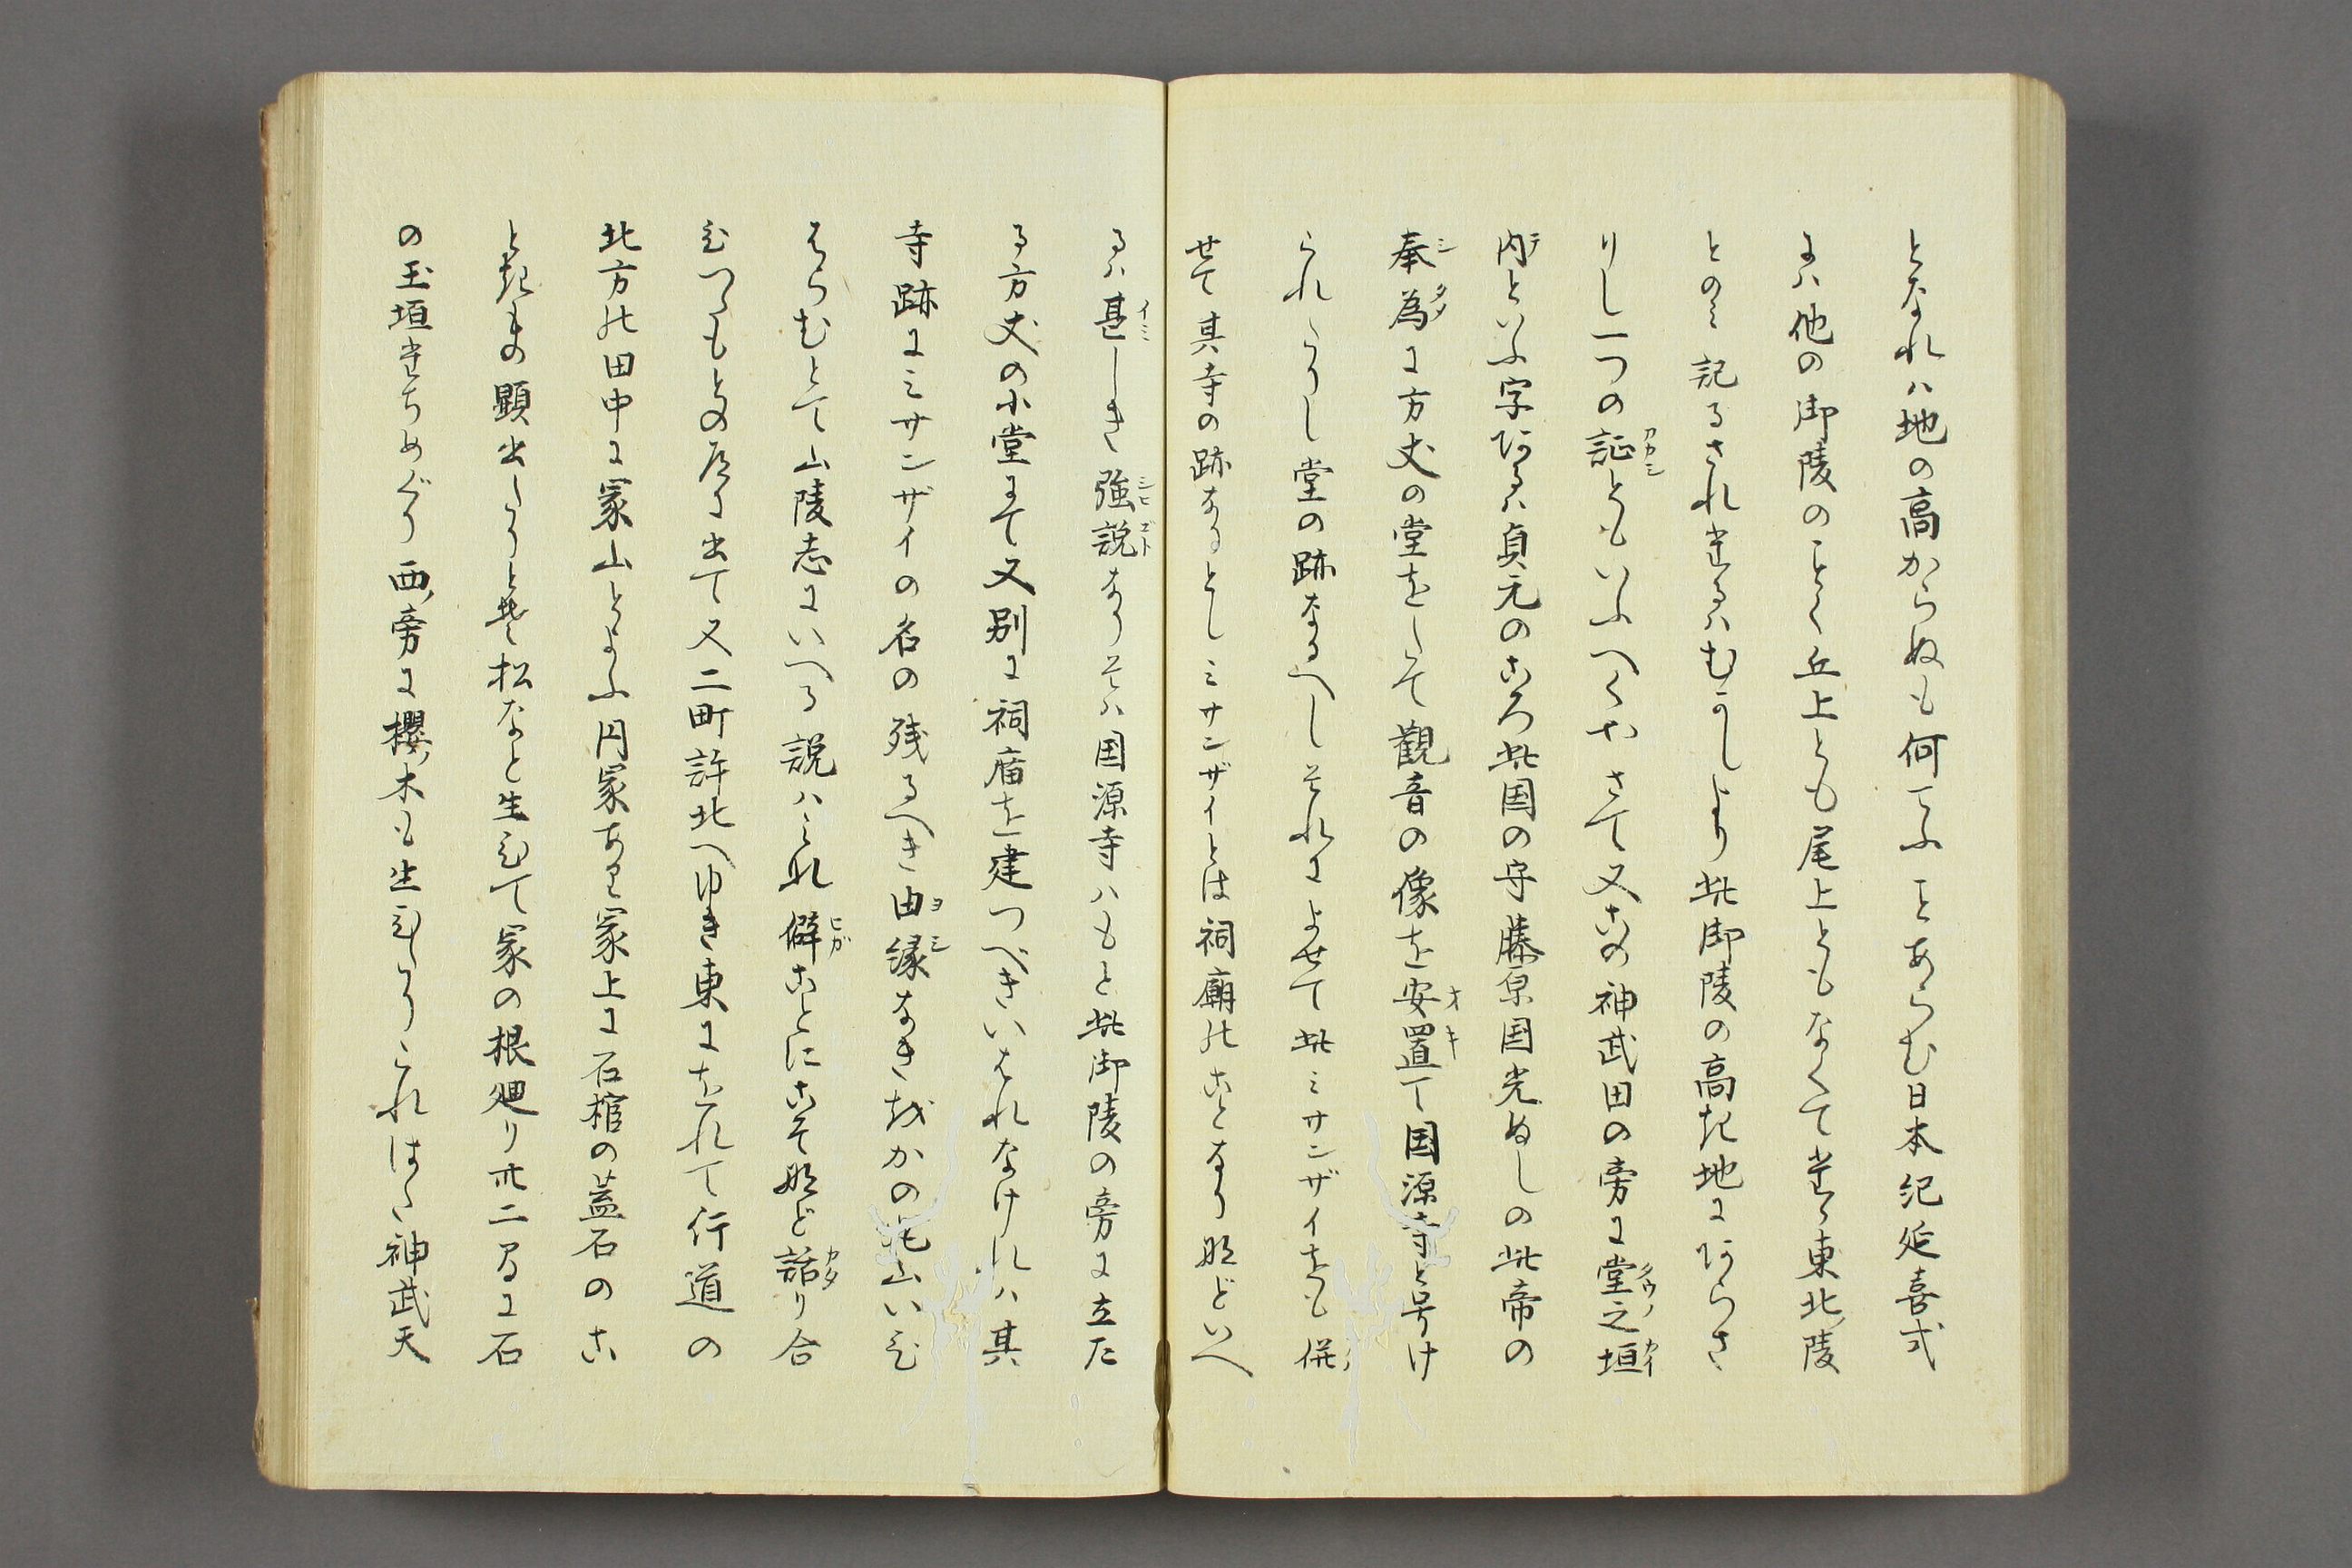 となれハ地の高からぬも何てふことあらむ日本紀延喜式
にハ他の御陵のことく丘上とも尾上ともなくてたゝ東北陵
とのミ記るされたるハむかしより此御陵の高き地にあらさ
りし一つの証ともいふへくなむさて又この神武田の旁に堂之垣
内といふ字あるハ貞元のころ此国の守藤原国光ぬしの此帝の
奉為に方丈の堂をたてて観音の像を安置て国源寺と号け
られたりし堂の跡なるへしそれによせて此ミサンザイをも併
せて其寺の跡なるとしミサンザイとは祠廟のことなり抔どいへ
るハ甚しき強説なりそハ国源寺ハもと此御陵の旁に立た
る方丈の小堂にて又別に祠庿を建つべきいはれなけれハ其
寺跡にミサンザイの名の残るへき由縁なきをやかの北山いひ
はらむとて山陵志にいへる説ハミれ僻ことにこそ抔ど話り合
ひつゝもとの道に出て又二町許北へゆき東にをれて行道の
北方の田中に冢山とよふ円冢あり冢上に石棺の蓋石のこ
ときもの顕出たりとそ松なと生ひて冢の根廻り卅二間に石
の玉垣たちめぐり西旁に櫻木も生ひたりこれはた神武天